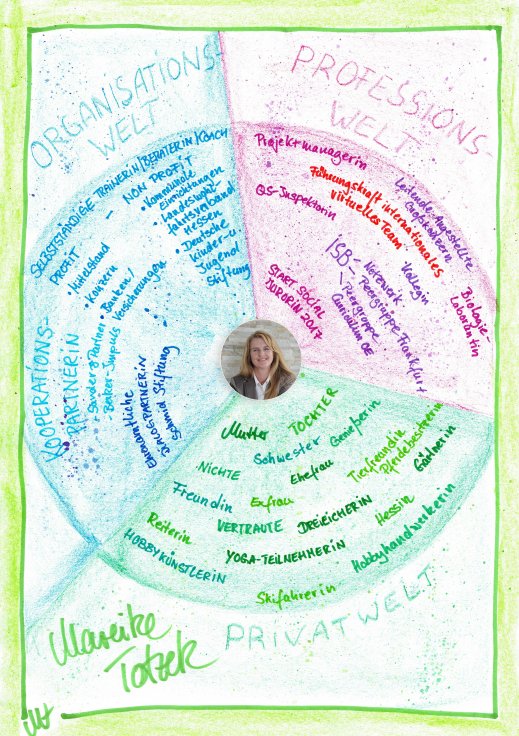 ORGANISATIONS-
WELT
SELBSTSTÄNDIGE TRAINERIN/BERATERIN/COACH
PROFIT
• Mittelstand
• Konzern
• Banken/
Versicherungen
- NON PROFIT
• Kommunale
Einrichtungen
• Landeswohl-
fahrtsverband
Hessen
• Deutsche
Kinder- u.
Jugend
Stiftung
KOOPERATIONS-
PARTNERIN
- Sanders & Partner
- Banker-Impuls
EHRENAMTLICHE
DIALOG-PARTNERIN
Schmid Stiftung
PROFESSIONS-
WELT
Projektmanagerin
QS-Inspektorin
Führungskraft internationales
virtuelles Team
Leitende Angestellte
Großkonzern
ISB
Netzwerk
Peergruppe Frankfurt
Peergruppe
Curriculum OE
Kollegin
START SOCIAL
JURORIN 2017
Biologie-
Laborantin
Mutter
TOCHTER
NICHTE
Schwester
Genießerin
Freundin
Exfrau
Ehefrau
Tierfreundin
Pferdebesitzerin
Gärtnerin
Reiterin
VERTRAUTE
DREIEICHERIN
Hessin
HOBBYKÜNSTLERIN
YOGA-TEILNEHMERIN
Hobbyhandwerkerin
Skifahrerin
PRIVATWELT
Mareike
Totzek